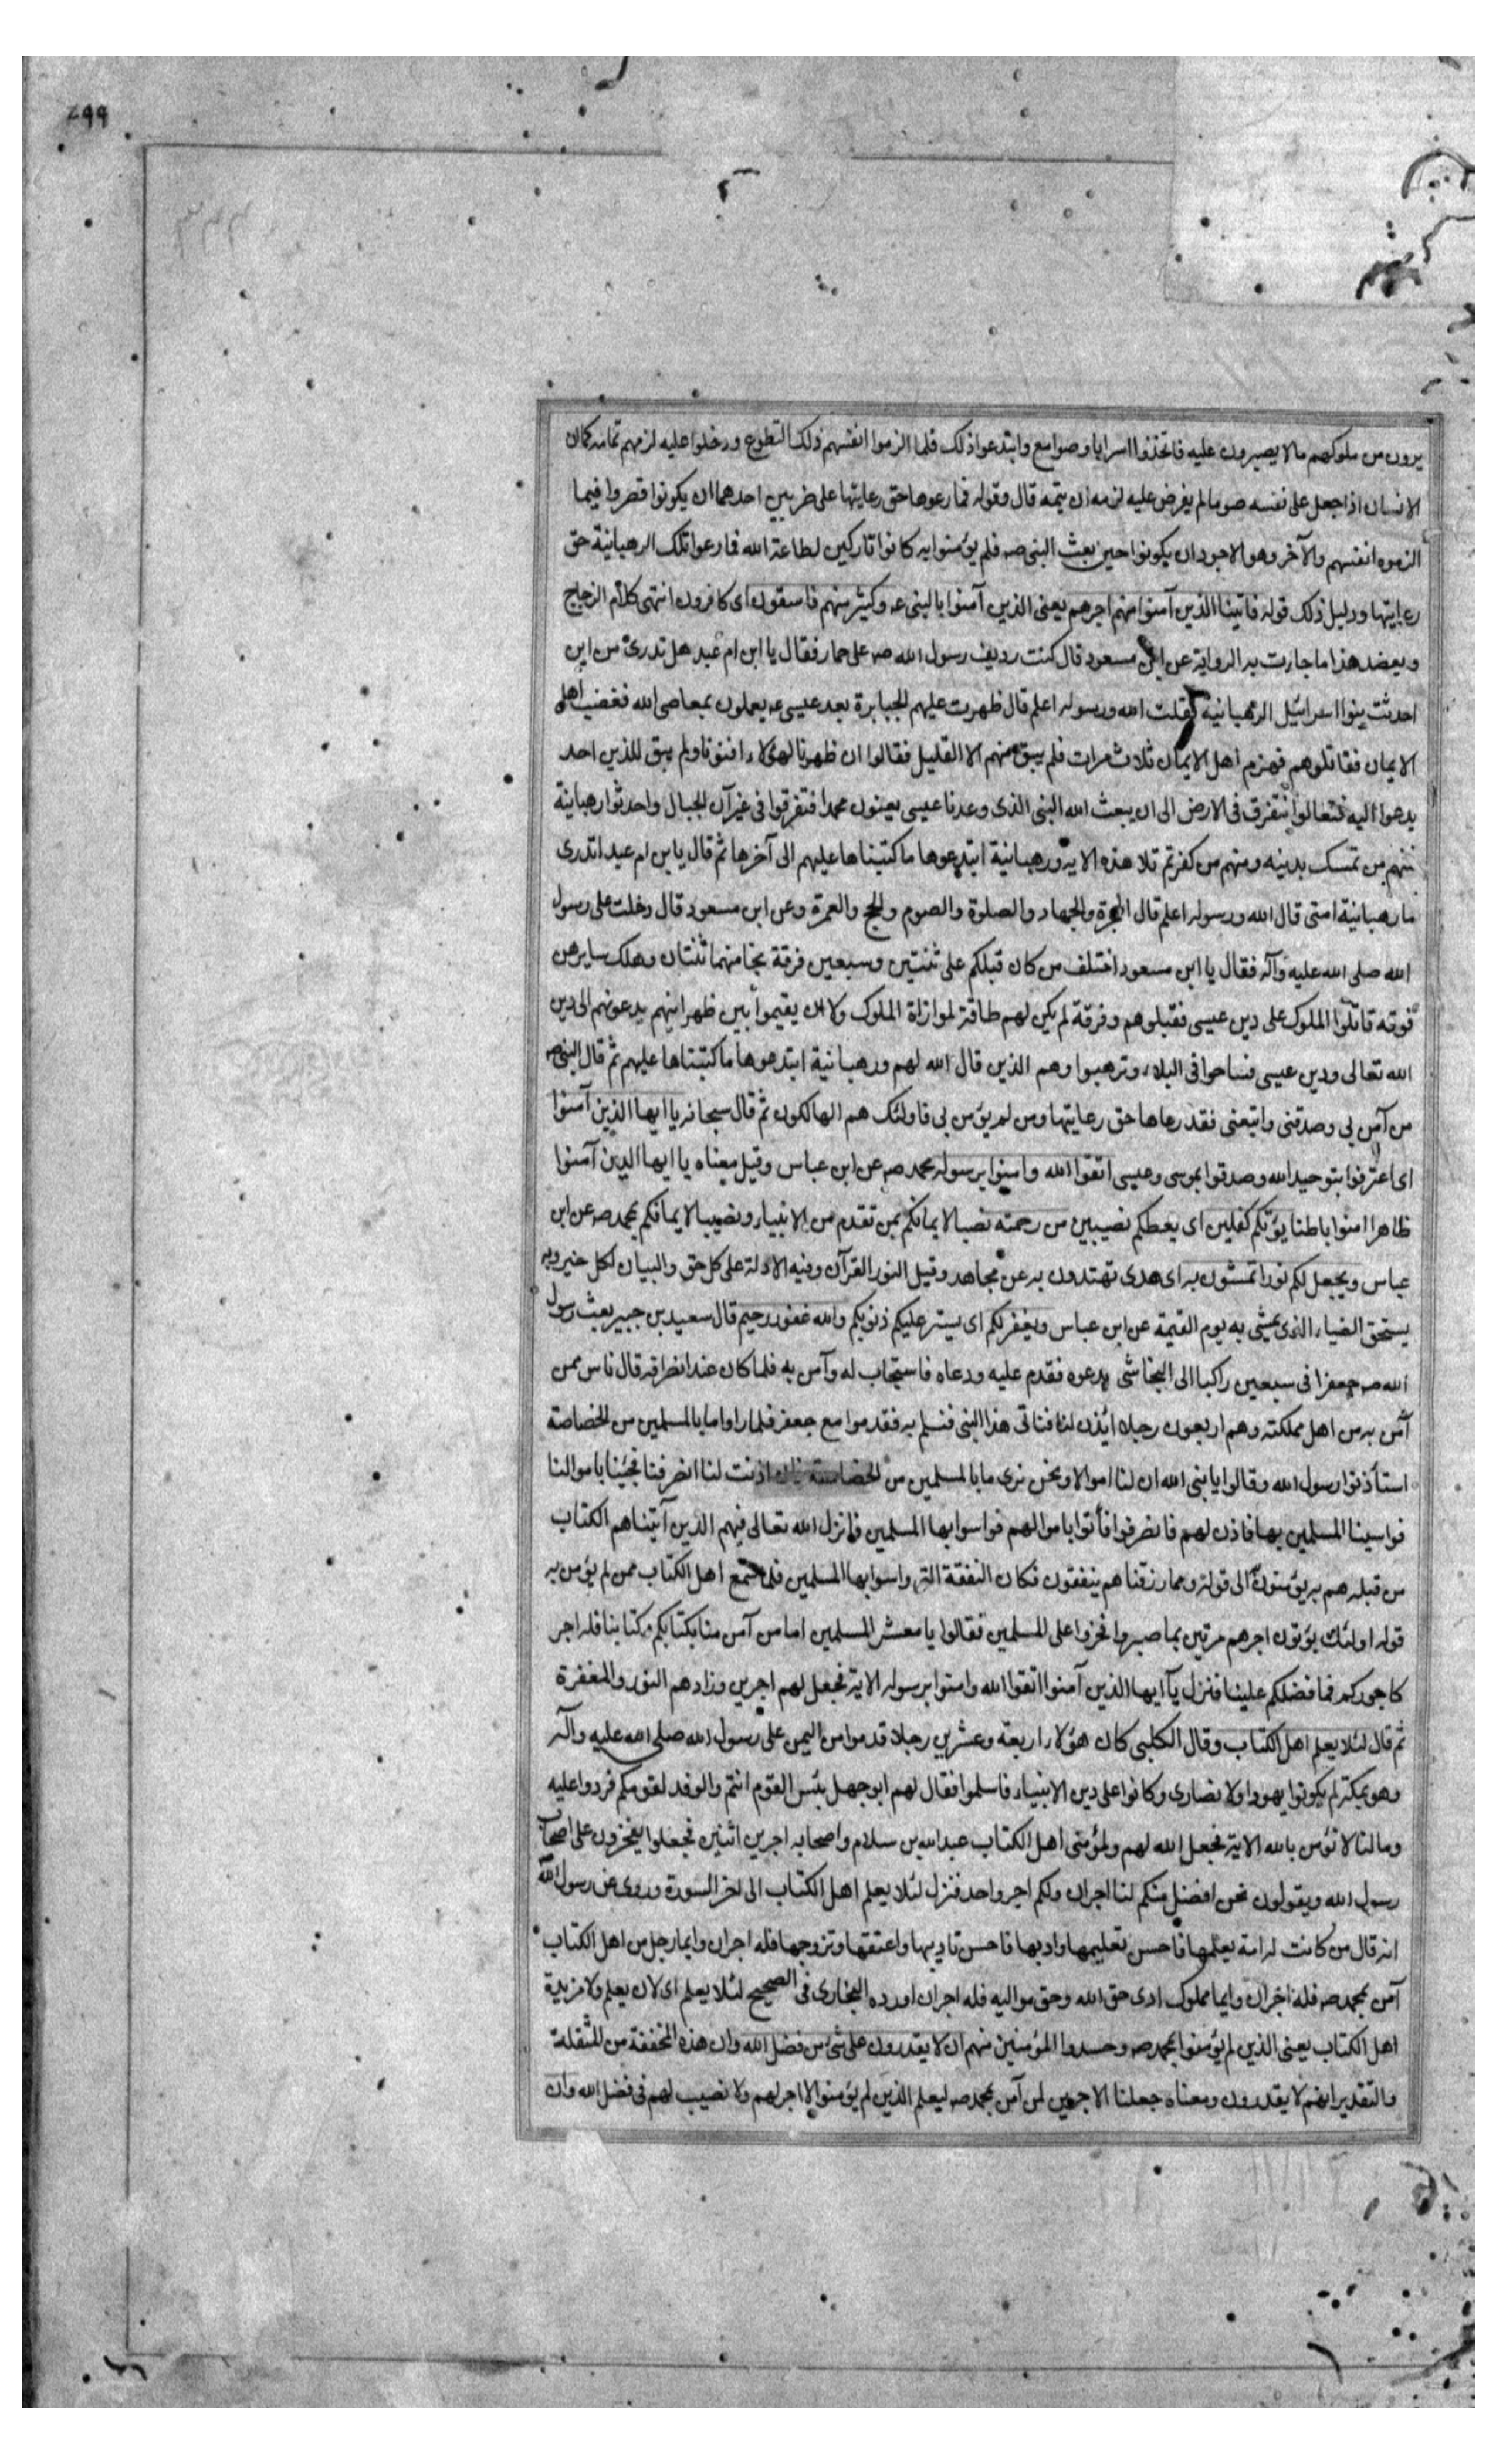 ٢٩٩
يرون من ملوكهم مالا يصبرون عليه فاتخذوا اسرابا وصوامع وابتدعوا ذلك فلما الزموا انفسهم ذلك التطوع ودخلوا عليه لزمهم تمامه كما ان
الانسان اذا جعل على نفسه صوما لم يفرض عليه لزمه ان يتمه قال وقوله فما رعوها حق رعايتها على ضربين احدهما ان يكونوا قصروا فيما
الزموه انفسهم والآخر وهو الاجود ان يكونوا حين بعث النبى صه فلم يؤمنوا به كانوا تاركين لطاعة الله فما رعوا تلك الرهبانية حق
رعايتها ودليل ذلك قوله فاتينا الذين آمنوا منهم اجرهم يعنى الذين آمنوا بالنبى عه وكثير منهم فاسقون اى كافرون انتهى كلام الزجاج
ويعضد هذا ما جاءت به الرواية عن ابن مسعود قال كنت رديف رسول الله صه على حمار فقال يا ابن ام عبد هل تدرى من اين
احدثت بنوا اسرائيل الرهبانية فقلت الله ورسوله اعلم قال ظهرت عليهم الجبابرة بعد عيسى عه يعملون بمعاصى الله فغضب اهل
الايمان فقاتلوهم فهزم اهل الايمان ثلاث مرات فلم يبق منهم الا القليل فقالوا ان ظهرنا لهؤلاء افنونا ولم يبق للدين احد
يدعوا اليه فتعالوا نتفرق فى الارض الى ان يبعث الله النبى الذى وعدنا عيسى يعنون محمدا فتفرقوا فى غيران الجبال واحدثوا رهبانية
فمنهم من تمسك بدينه ومنهم من كفر ثم تلا هذه الاية ورهبانية ابتدعوها ما كتبناها عليهم الى آخرها ثم قال يابن ام عبد اتدرى
ما رهبانية امتى قال الله ورسوله اعلم قال الهجرة والجهاد والصلوة والصوم والحج والعمرة وعن ابن مسعود قال دخلت على رسول
الله صلى الله عليه وآله فقال يا ابن مسعود اختلف من كان قبلكم على ثنتين وسبعين فرقة نجا منهما ثنتان وهلك سايرهن
فرقه قاتلوا الملوك على دين عيسى فقتلوهم وفرقة لم يكن لهم طاقة لموازاة الملوك ولا ان يقيموا بين ظهرانيهم يدعونهم الى دين
الله تعالى ودين عيسى فساحوا فى البلاد وترهبوا وهم الذين قال الله لهم ورهبانية ابتدعوها ما كتبناها عليهم ثم قال النبى صه
من آمن بى وصدقنى واتبعنى فقد رعاها حق رعايتها ومن لم يؤمن بى فاولئك هم الهالكون ثم قال سبحانه يا ايها الذين آمنوا
اى اعترفوا بتوحيد الله وصدقوا بموسى وعيسى اتقوا الله وامنوا برسوله محمد صه عن ابن عباس وقيل معناه يا ايها الذين آمنوا
ظاهرا امنوا باطنا يؤتكم كفلين اى يعطكم نصيبين من رحمته نصبا لايمانكم بمن تقدم من الانبياء ونصيبا لايمانكم بمحمد صه عن ابن
عباس ويجعل لكم نورا تمشون به اى هدى تهتدون به عن مجاهد وقيل النور القرآن وفيه الادلة على كل حق والبيان لكل خير وبه
يستحق الضياء الذى يمشى به يوم القيمة عن ابن عباس ويغفر لكم اى يستر عليكم ذنوبكم والله غفور رحيم قال سعيد بن جبير بعث رسول
الله صه جعفرا فى سبعين راكبا الى النجاشى يدعوه فقدم عليه ودعاه فاستجاب له وآمن به فلما كان عند انصرافه قال ناس ممن
آمن به من اهل مملكته وهم اربعون رجلا ائذن لنا فناتى هذا النبى فنسلم به فقدموا مع جعفر فلما راوا ما بالمسلمين من الخصاصة
استأذنوا رسول الله وقالوا يا نبى الله ان لنا اموالا ونحن نرى ما بالمسلمين من الخصاصة فان اذنت لنا انصرفنا فجئنا باموالنا
فواسينا المسلمين بها فاذن لهم فانصرفوا فأتوا باموالهم فواسوا بها المسلمين فانزل الله تعالى فيهم الذين آتيناهم الكتاب
من قبله هم به يؤمنون الى قوله ومما رزقناهم ينفقون فكان النفقة التى واسوا بها المسلمين فلما سمع اهل الكتاب ممن لم يؤمن به
قوله اولئك يؤتون اجرهم مرتين بما صبروا فخروا على المسلمين فقالوا يا معشر المسلمين اما من آمن منا بكتابكم وكتابنا فله اجر
كاجوركم فما فضلكم علينا فنزل يآ ايها الذين آمنوا اتقوا الله وامنوا برسوله الاية فجعل لهم اجرين وزادهم النور والمغفرة
ثم قال لئلا يعلم اهل الكتاب وقال الكلبى كان هؤلاء اربعة وعشرين رجلا قدموا من اليمن على رسول الله صلى الله عليه وآله
وهو بمكة لم يكونوا يهودا ولا نصارى وكانوا على دين الانبياء فاسلموا فقال لهم ابو جهل بئس القوم انتم والوفد لقومكم فردوا عليه
وما لنا لا نؤمن بالله الاية فجعل الله لهم ولمؤمنى اهل الكتاب عبد الله بن سلام واصحابه اجرين اثنين فجعلوا يفخرون على اصحاب
رسول الله ويقولون نحن افضل منكم لنا اجران ولكم اجر واحد فنزل لئلا يعلم اهل الكتاب الى اخر السورة وروى عن رسول الله
انه قال من كانت له امة يعلمها فاحسن تعليمها وادبها فاحسن تاديبها واعتقها وتزوجها فله اجران وايما رجل من اهل الكتاب
آمن بمحمد صه فله اجران وايما مملوك ادى حق الله وحق مواليه فله اجران اورده البخارى فى الصحيح لئلا يعلم اى لان يعلم ولا مزيدة
اهل الكتاب يعنى الذين لم يؤمنوا بمحمد صه وحسدوا المؤمنين منهم ان لا يقدرون على شىء من فضل الله وان هذه المخففة من المثقلة
والتقدير انهم لا يقدرون ومعناه جعلنا الاجرين لمن آمن بمحمد صه ليعلم الذين لم يؤمنوا الا اجر لهم ولا نصيب لهم فى فضل الله وان